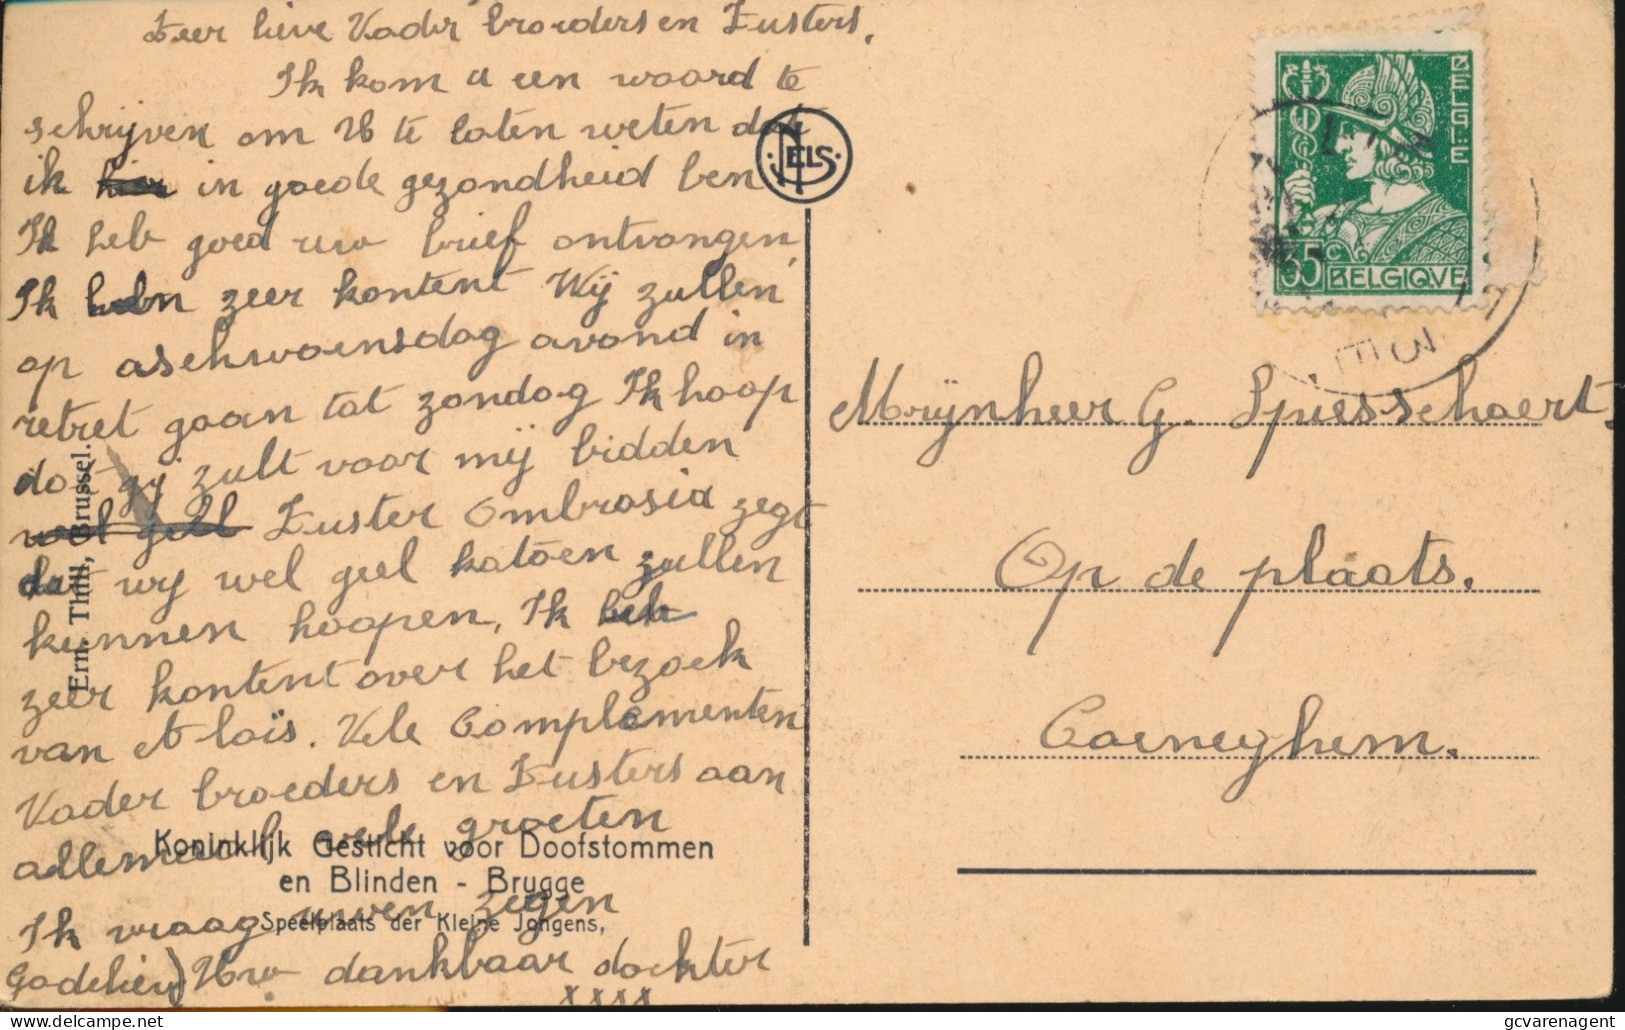 Zeer lieve Vader broeders en Zusters,
Ik kom u een woord te
schrijven om U te laten weten dat
ik hier in goede gezondheid ben
Ik heb goed uw brief ontvangen,
Ik ben zeer kontent Wij zullen
op aschwoensdag avond in
retret gaan tot zondag Ik hoop
dat gij zult voor mij bidden
wel geel Zuster Ombrosia zegt
dat wij wel geel katoen zullen
kunnen hoopen, Ik heb
zeer kontent over het bezoek
van et loïs. Vele Complementen
Vader broeders en Zusters aan
allemaal vele groeten
Ik vraag uwen zegen
Godelieve) Uw dankbaar dochter
xxxx
NELS
Ern. Thill, Brussel.
Koninklijk Gesticht voor Doofstommen
en Blinden - Brugge
Speelplaats der Kleine Jongens,
BELGIE
35c BELGIQVE
Mijnheer G. Spiesschaert,
Op de plaats.
Caeneghem.
© gcvarenagent